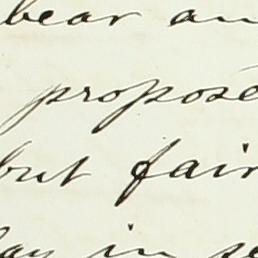 bear an
propose
but fair
in se